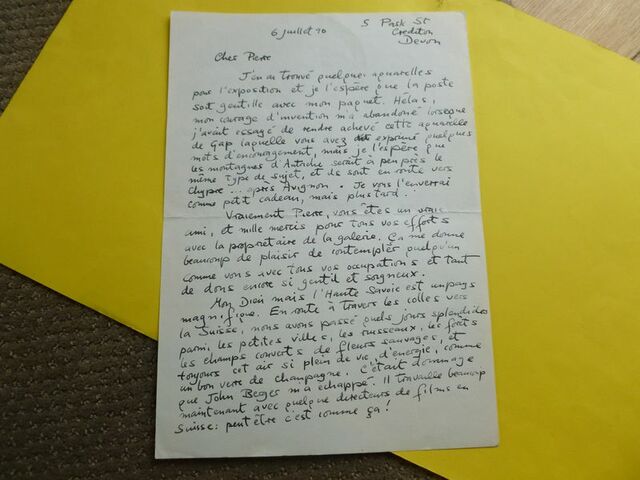 6 juillet 90
5 Park St
Crediton
Devon
Cher Pierre
J'en ai trouvé quelques aquarelles
pour l'exposition et je l'espère que la poste
soit gentille avec mon paquet. Hélas,
mon courage d'invention m'a abandonné lorsque
j'avait essayé de rendre achevé cette aquarelle
de Gap laquelle vous avez exprimé quelques
mots d'encouragement, mais je l'espère que
les montagnes d'Autriche serait à peu près le
même type de sujet, et ils sont en route vers
chypre... après Avignon. Je vous l'enverrai
comme petit cadeau, mais plus tard.
Vraiement Pierre, vous êtes un vrai
ami, et mille mercis pour tous vos efforts
avec la proprietaire de la galerie. Ça me donne
beaucoup de plaisir de contempler quelqu'un
comme vous avec tous vos occupations et tant
de dons encore si gentil et soigneux.
Mon Dieu mais l'Haute Savoie est un pays
magnifique. En route à travers les colles vers
la Suisse, nous avons passé quels jours splendides
parmi les petites villes, les ruisseaux, les forêts
les champs couverts de fleurs sauvages, et
toujours cet air si plein de vie, d'energie, comme
un bon verre de champagne. C'était dommage
que John Berger m'a echappé. Il travaille beaucoup
maintenant avec quelque directeurs de films en
Suisse: peut être c'est comme ça!